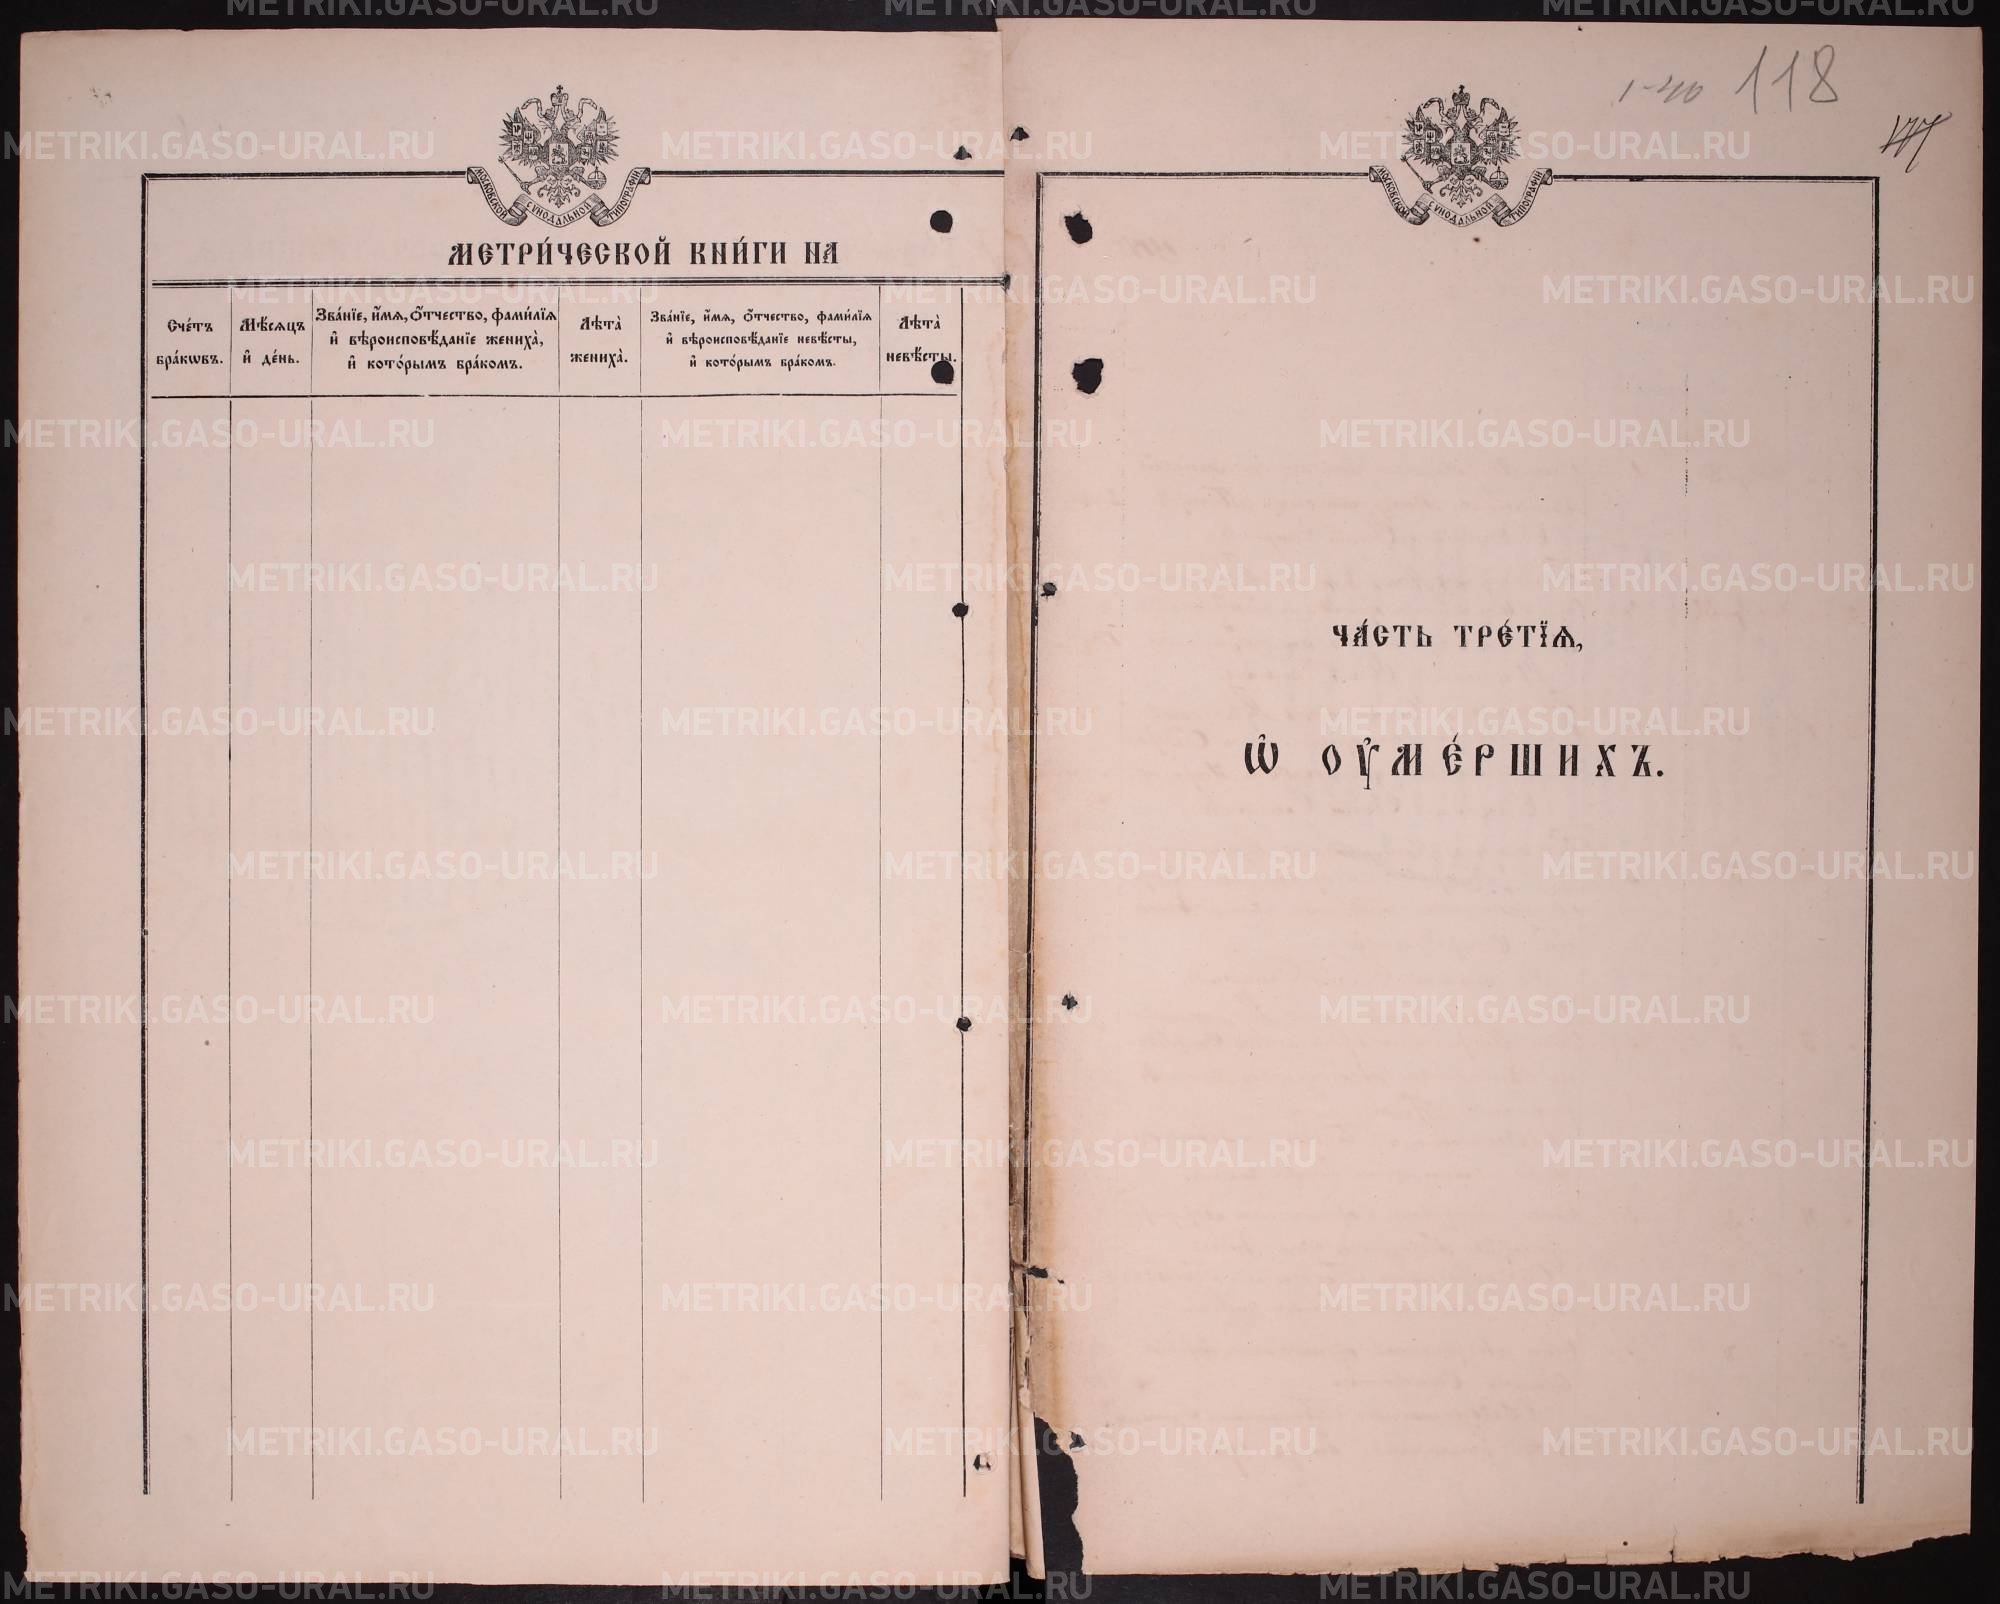 МОСКОВСКОЙ СѴНОДАЛЬНОЙ ТИПОГРАФІИ
МЕТРИ́ЧЕСКОЙ КНИ́ГИ НА
Сче́тъ бра́кѡвъ.
Мѣ́сяцъ и҆ де́нь.
Зва́нїе, и҆́мѧ, ѻ҆́тчество, фами́лїѧ и҆ вѣроисповѣ́данїе жениха̀, и҆ кото́рымъ бра́комъ.
Лѣта̀ жениха̀.
Зва́нїе, и҆́мѧ, ѻ҆́тчество, фами́лїѧ и҆ вѣроисповѣ́данїе невѣ́сты, и҆ кото́рымъ бра́комъ.
Лѣта̀ невѣ́сты.
1-40 118
177
МОСКОВСКОЙ СѴНОДАЛЬНОЙ ТИПОГРАФІИ
ЧА́СТЬ ТРЕ́ТЇѦ,
Ѡ҆ ОУ҆МЕ́РШИХЪ.
METRIKI.GASO-URAL.RU